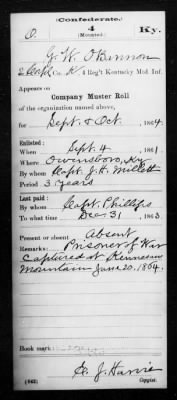 (Confederate.)
O. 4 Ky.
(Mounted.)
G. W. O'Bannon
2 Corpl, Co. K, 4 Reg't Kentucky Mtd. Inf.
Appears on
Company Muster Roll
of the organization named above,
for Sept. & Oct., 1864.
Enlisted:
When Sept. 4, 1861.
Where Owensboro, Ky
By whom Capt. J. H. Millett
Period 3 years
Last paid:
By whom Capt. Phillips
To what time Dec 31, 1863.
Present or absent Absent
Remarks: Prisoner of War
Captured at Kennesaw
Mountain June 20. 1864.
Book mark:
(642) C. J. Harvie
Copyist.